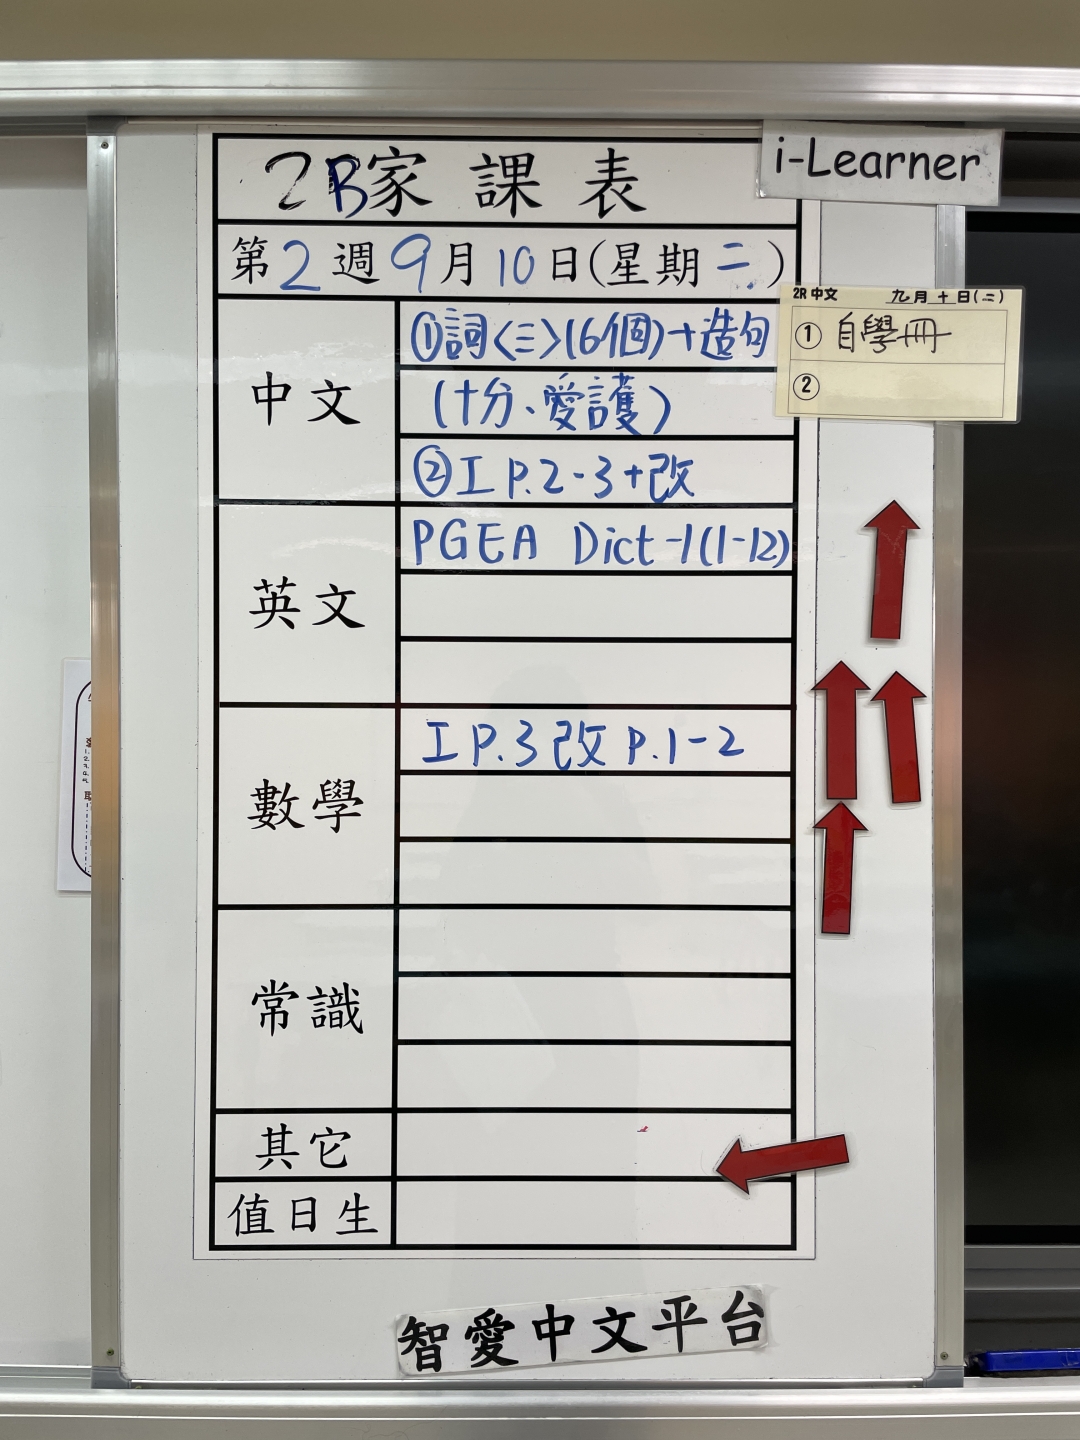 2B家課表
i-Learner
第2週9月10日(星期二)
2R中文 九月十日(二)
① 自學冊
②
中文
①詞<三>(6個)+造句
(十分、愛護)
②工 P.2-3+改
英文
PGEA Dict-1(1-12)
數學
工 P.3 改 P.1-2
常識
其它
值日生
智愛中文平台